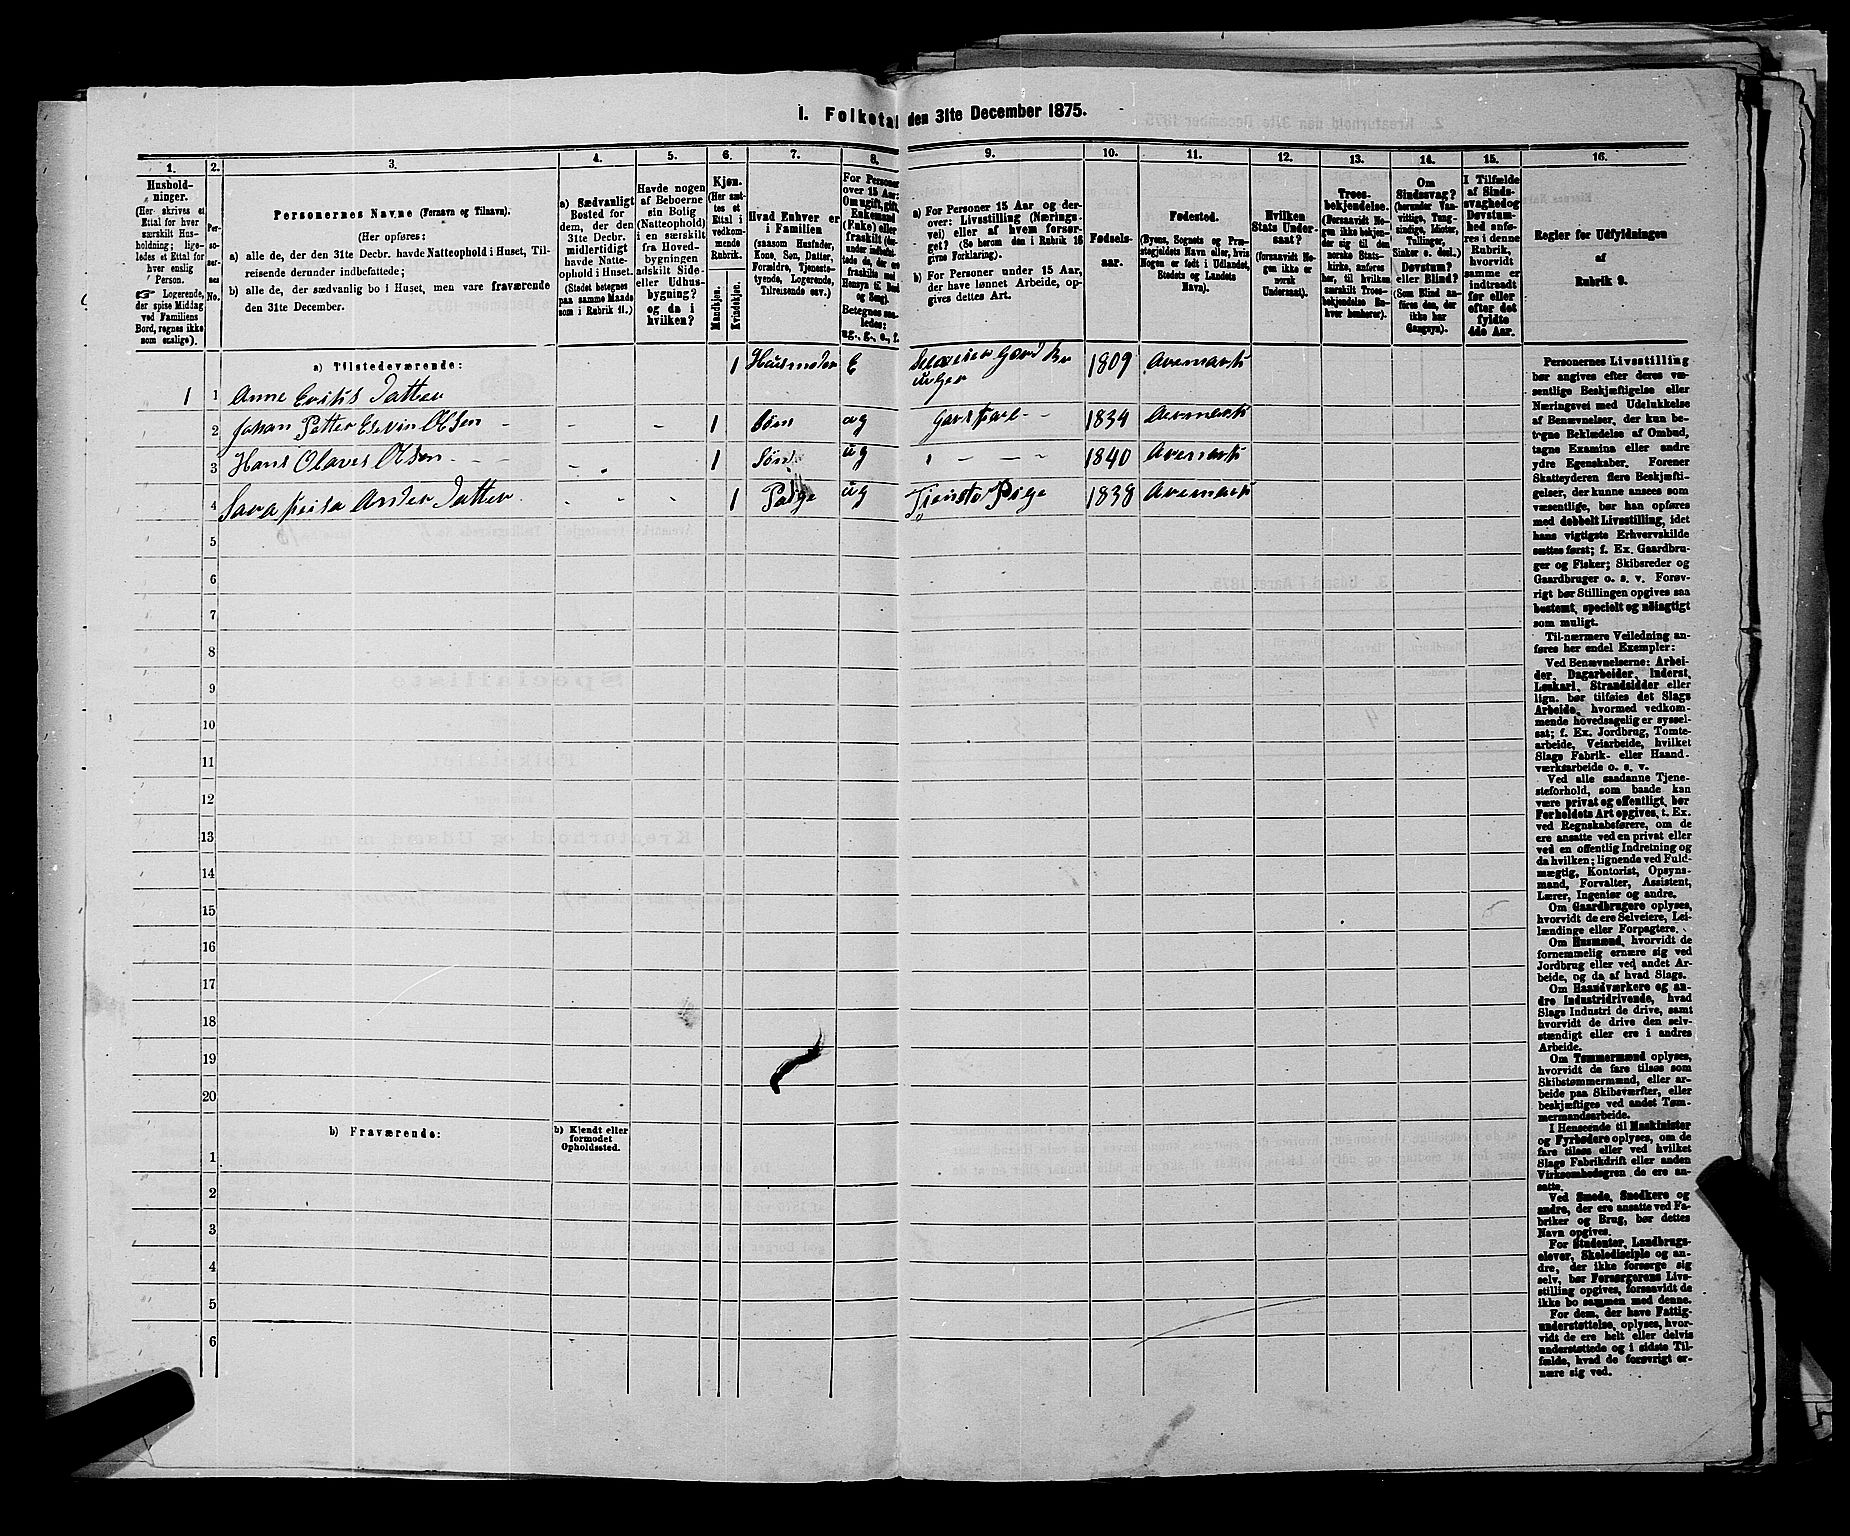 I. Folketal den 31te December 1875.
1. 2. 3. 4. 5. 6. 7. 8. 9. 10. 11. 12. 13. 14. 15. 16.
Hushold-
ninger.
(Her skrives et
Ettal for hver
særskilt Hus-
holdning; lige-
ledes et Ettal for
hver enslig
Person.
☞ Logerende,
der spise Middag
ved Familiens
Bord, regnes ikke
som enslige).
Per-
so-
ner-
nes
No.
Personernes Navne (Fornavn og Tilnavn).
(Her opføres:
a) alle de, der den 31te Decbr. havde Natteophold i Huset, Til-
reisende derunder indbefattede;
b) alle de, der sædvanlig bo i Huset, men vare fraværende
den 31te December.
a) Sædvanligt
Bosted for
dem, der den
31te Decbr.
midlertidigt
havde Natte-
ophold i Huset.
(Stedet betegnes
paa samme Maade
som i Rubrik 11.)
Havde nogen
af Beboerne
sin Bolig
(Natteophold)
i en særskilt
fra Hoved-
bygningen
adskilt Side-
eller Udhus-
bygning?
og da i
hvilken?
Kjøn.
(Her sæt-
tes et
Ettal i
vedkom-
mende
Rubrik.
Mandkjøn.
Kvindekjøn.
Hvad Enhver er
i Familien
(saasom Husfader,
Kone, Søn, Datter,
Forældre, Tjeneste-
tyende, Logerende,
Tilreisende osv.)
For Personer
over 15 Aar:
Om ugift, gift,
Enkemand
(Enke) eller
fraskilt
Betegnes saa-
ledes:
ug., g., e., f.
a) For Personer 15 Aar og der-
over: Livsstilling (Nærings-
vei) eller af hvem forsør-
get? (Se herom den i Rubrik 16
givne Forklaring).
b) For Personer under 15 Aar,
der have lønnet Arbeide, op-
gives dettes Art.
Fødsels-
aar.
Fødested.
(Byens, Sognets og Præ-
stegjeldets Navn eller, hvis
Nogen er født i Udlandet,
Stedets og Landets
Navn).
Hvilken
Stats Under-
saat?
(forsaavidt No-
gen ikke er
norsk
Undersaat).
Troes-
bekjendelse.
(Forsaavidt No-
gen ikke bekjen-
der sig til den
norske Stats-
kirke, anføres
her, til hvilken
særskilt Troes-
bekjendelse En-
hver henhører).
Om
Sindssvag?
(herunder Van-
vittige, Tung-
sindige, Idioter,
Tullinger,
Sinker o. desl.)
Døvstum?
eller Blind?
(Som Blind an-
føres den, der
ikke har
Gangsyn).
I Tilfælde
af Sinds-
svaghed og
Døvstum-
hed anfø-
res i denne
Rubrik,
hvorvidt
samme er
indtraadt
før eller
efter det
fyldte
4de Aar.
Regler for Udfyldningen
af
Rubrik 9.
a) Tilstedeværende:
1 1 Anne 1 Husmoder E 1809
2 Johan Petter Olsen 1 Søn ug 1834
3 Hans Olaves Olsen 1 Søn ug 1840
4 Ander Datter 1 Paige ug Tjenste Pige 1838
5
6
7
8
9
10
11
12
13
14
15
16
17
18
19
20
b) Fraværende:
b) Kjendt eller
formodet
Opholdssted.
1
2
3
4
5
6
Personernes Livsstilling
bør angives efter deres væ-
sentlige Beskjæftigelse eller
Næringsvei med Udelukkelse
af Benævnelser, der kun be-
tegne Beklædelse af Ombud,
tagne Examina eller andre
ydre Egenskaber. Forener
Skatteyderen flere Beskjæfti-
gelser, der kunne ansees som
væsentlige, bør han opføres
med dobbelt Livsstilling, idet
hans vigtigste Erhvervskilde
sættes først; f. Ex. Gaardbru-
ger og Fisker; Skibsreder og
Gaardbruger o. s. v. Forøv-
rigt bør Stillingen opgives saa
bestemt, specielt og nøiagtigt
som muligt.
Til nærmere Veiledning an-
føres her endel Exempler:
Ved Benævnelserne: Arbei-
der, Dagarbeider, Inderst,
Løskarl, Strandsidder eller
lign. bør tilføies det Slags
Arbeide, hvormed vedkom-
mende hovedsagelig er syssel-
sat; f. Ex. Jordbrug, Tomte-
arbeide, Veiarbeide, hvilket
Slags Fabrik- eller Haand-
værksarbeide o. s. v.
Ved alle saadanne Tjene-
steforhold, som baade kan
være privat og offentligt, bør
Forholdets Art opgives, t. Ex.
ved Regnskabsførere, om de
ere ansatte ved en privat eller
ved en offentlig Indretning og
da hvilken; lignende ved Fuld-
mægtig, Kontorist, Opsyns-
mand, Forvalter, Assistent,
Lærer, Ingeniør og andre.
Om Gaardbrugere oplyses,
hvorvidt de ere Selveiere, Lei-
lændinge eller Forpagtere.
Om Husmænd, hvorvidt de
fornemmelig ernære sig ved
Jordbrug eller ved andet Ar-
beide, og da af hvad Slags.
Om Haandværkere og an-
dre Industridrivende, hvad
Slags Industri de drive, samt
hvorvidt de drive den selv-
stændigt eller ere i andres
Arbeide.
Om Tømmermænd oplyses,
hvorvidt de fare tilsøs som
Skibstømmermænd, eller ar-
beide paa Skibsværfter, eller
beskjæftiges ved andet Tøm-
mermandsarbeide.
I Henseende til Maskinister
og Fyrbødere oplyses, om de
fare tilsøs eller ved hvilket
Slags Fabrikdrift eller anden
Virksomhedsgren de ere an-
satte.
Ved Smede, Snedkere og
andre, der ere ansatte ved Fa-
briker og Brug, bør dettes
Navn opgives.
For Studenter, Landbrugs-
elever, Skoledisciple og an-
dre, der ikke forsørge sig
selv, bør Forsørgerens Livs-
stilling opgives, forsaavidt de
ikke bo sammen med denne.
For dem, der have Fattig-
understøttelse, oplyses, hvor-
vidt de ere helt eller delvis
understøttede og i sidste Til-
fælde, hvad de forøvrigt er-
nære sig ved.